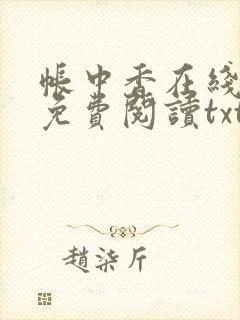 帳中香在綫
免費閱讀txt
趙柒斤